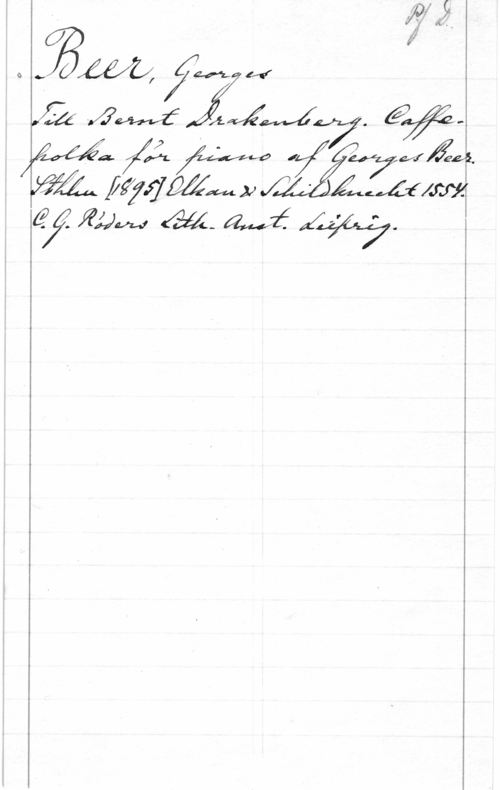 Pf D.
Beer, Georges
Till Bernt Drakenberg. Caffe-
polka för piano af Georges Beer.
Sthlm [1895] Elkan & Schildknecht 1554.
C. G. Röders Lith. Anst. Leipzig.